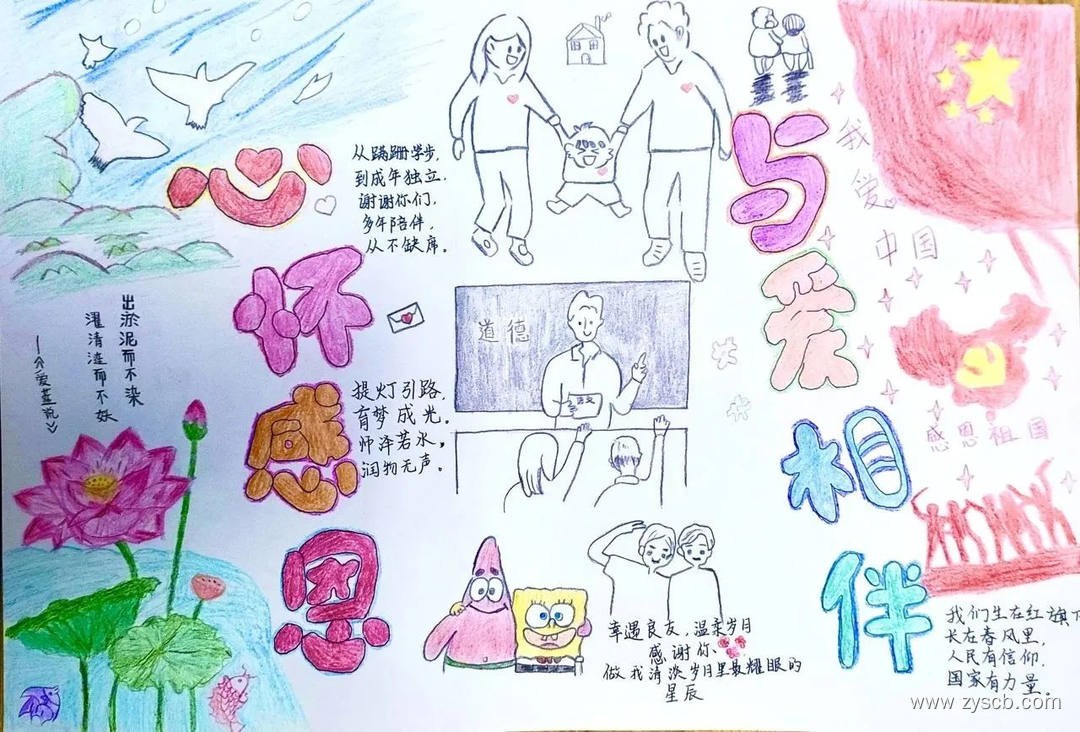 心怀感恩
与爱相伴
从蹒跚学步,
到成年独立.
谢谢你们,
多年陪伴,
从不缺席.
出淤泥而不染
濯清涟而不妖
——《爱莲说》
提灯引路,
育梦成光.
师泽若水,
润物无声.
道德
幸遇良友,温柔岁月
感谢你、
做我清淡岁月里最耀眼的
星辰
我爱
中国
感恩祖国
我们生在红旗下
长在春风里,
人民有信仰.
国家有力量。
www.zyscb.com